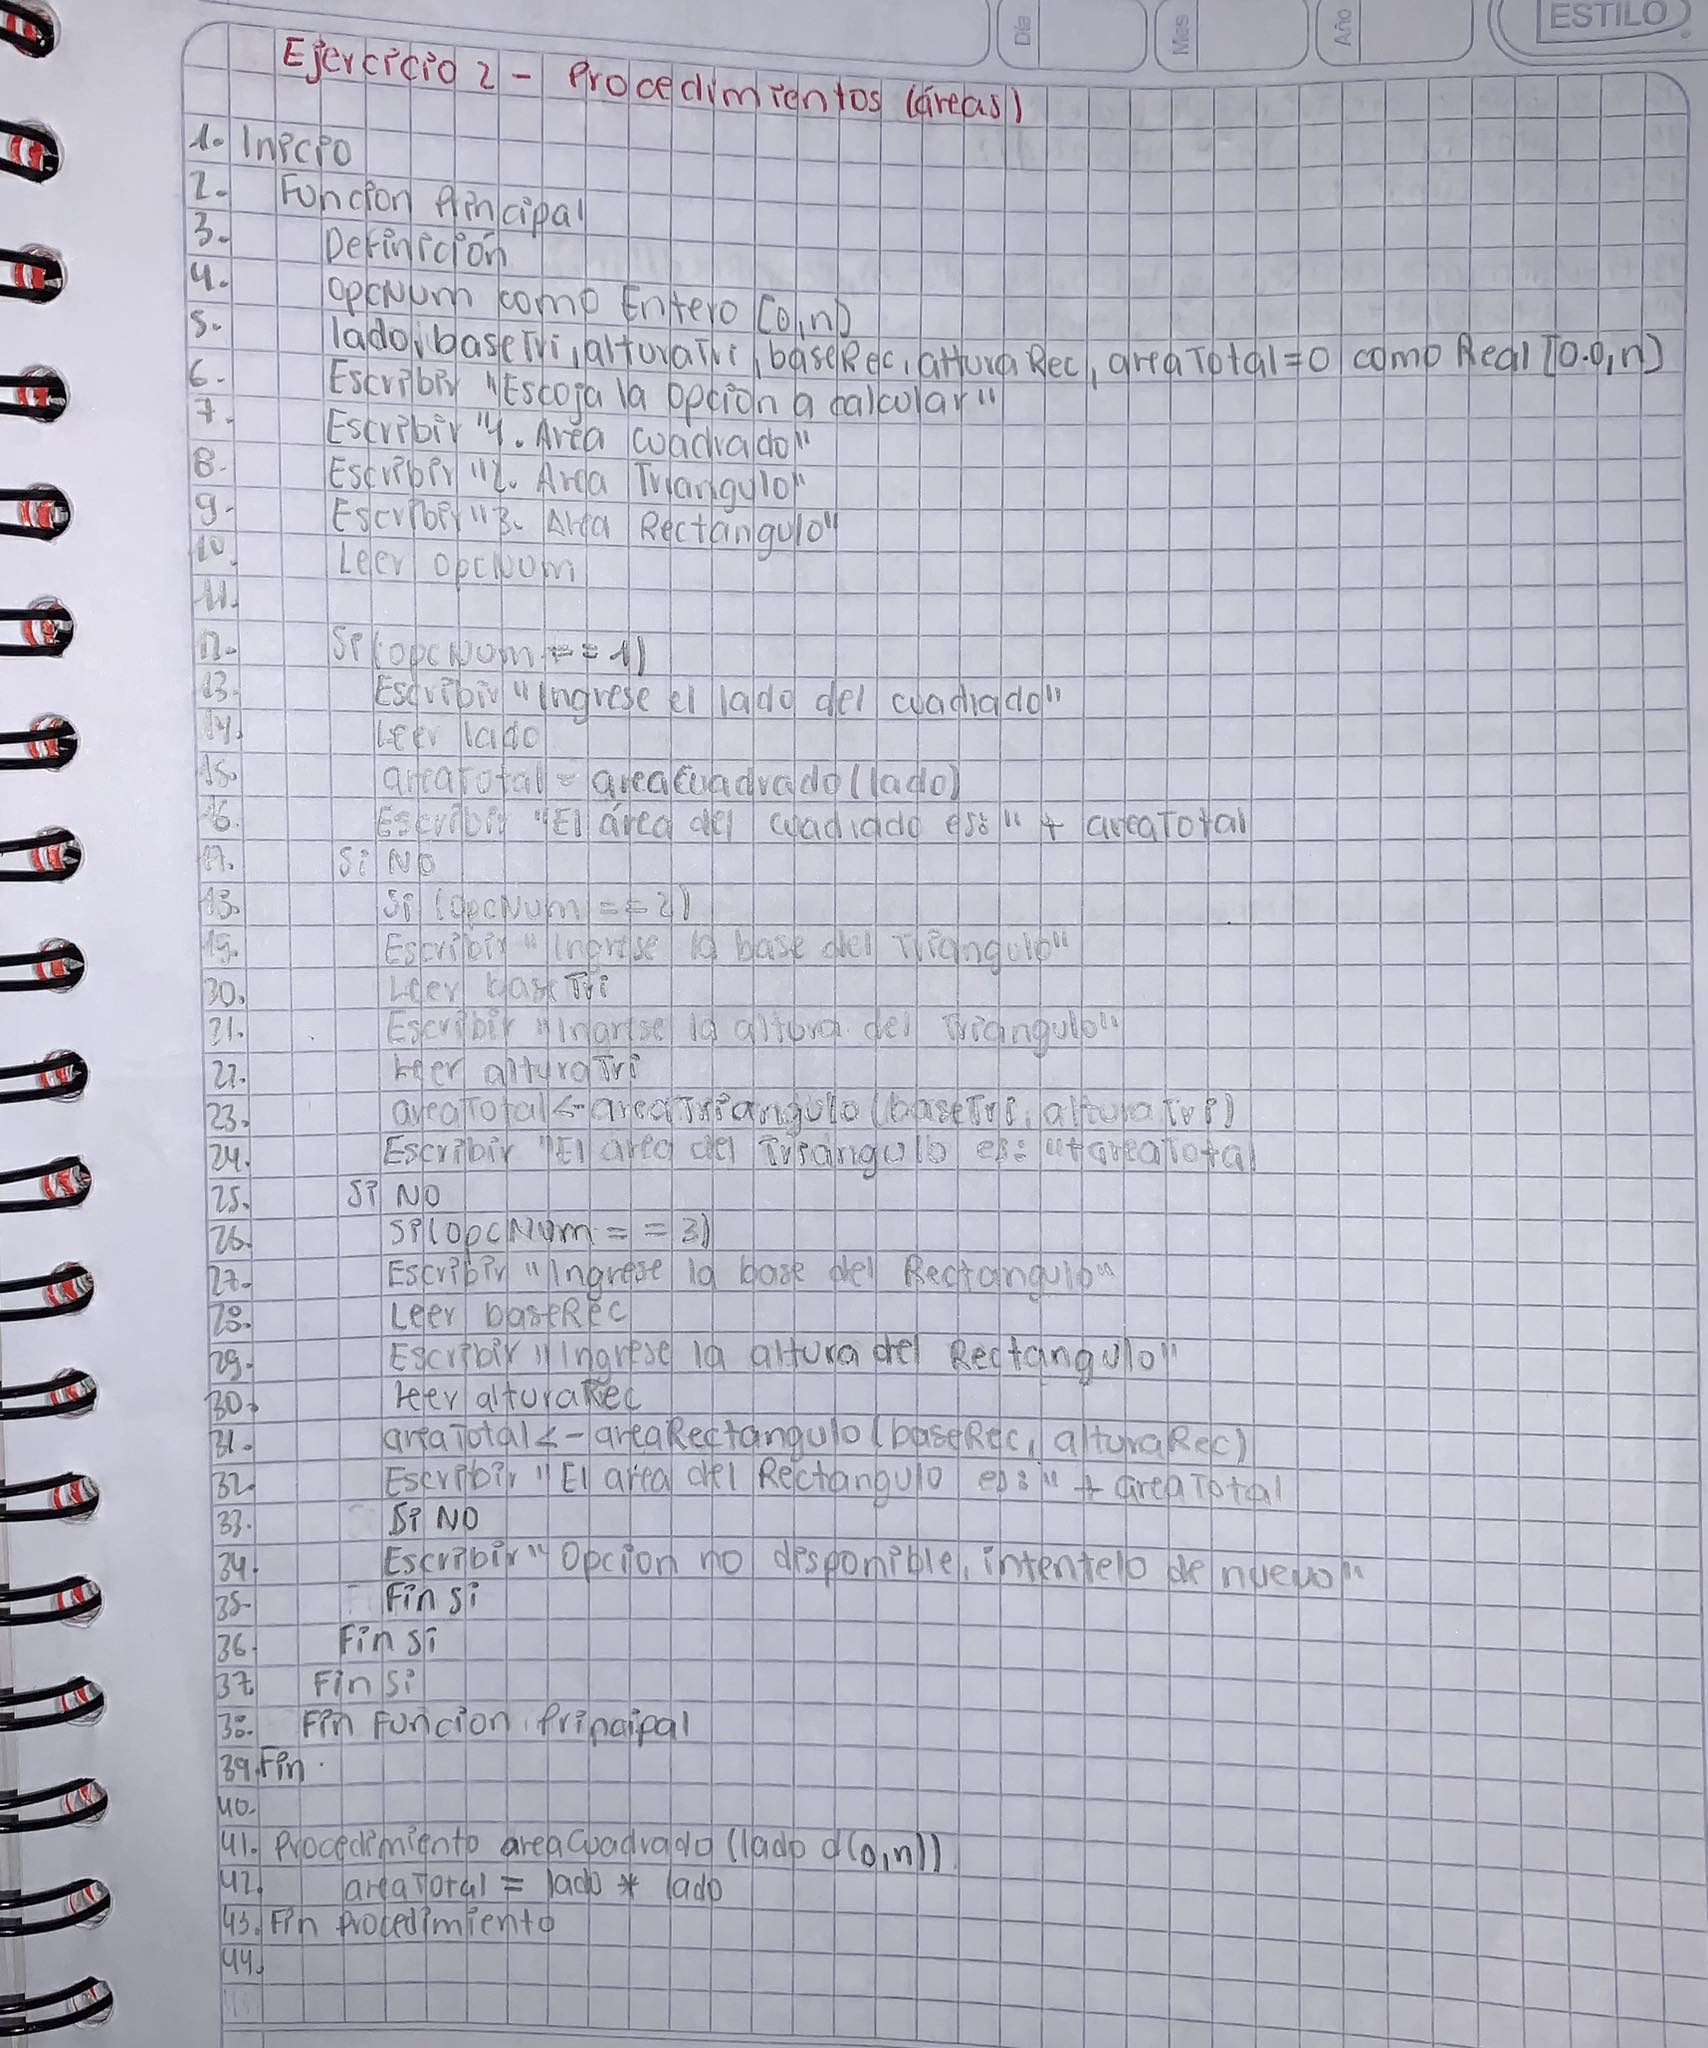 Día
Mes
Año
ESTILO
Ejercicio 2 - Procedimientos (áreas)
1. Inicio
2. Funcion Principal
3. Definición
4. opcNum como Entero [0,n)
5. lado, baseTri, alturaTri, baseRec, alturaRec, areaTotal=0 como Real [0.0,n)
6. Escribir "Escoja la opcion a calcular"
7. Escribir "1. Area cuadrado"
8. Escribir "2. Area Triangulo"
9. Escribir "3. Area Rectangulo"
10. Leer opcNum
11.
12. Si(opcNum == 1)
13. Escribir "Ingrese el lado del cuadrado"
14. Leer lado
15. areaTotal = areaCuadrado(lado)
16. Escribir "El área del cuadrado es: " + areaTotal
17. Si NO
18. Si (opcNum == 2)
19. Escribir "Ingrese la base del Triangulo"
20. Leer baseTri
21. Escribir "Ingrese la altura del Triangulo"
22. Leer alturaTri
23. areaTotal <- areaTriangulo (baseTri, alturaTri)
24. Escribir "El area del Triangulo es: "+areaTotal
25. Si NO
26. Si(opcNum == 3)
27. Escribir "Ingrese la base del Rectangulo"
28. Leer baseRec
29. Escribir "Ingrese la altura del Rectangulo"
30. Leer alturaRec
31. areaTotal <- areaRectangulo (baseRec, alturaRec)
32. Escribir "El area del Rectangulo es: " + areaTotal
33. Si NO
34. Escribir "Opcion no disponible, intentelo de nuevo"
35. Fin si
36. Fin si
37. Fin Si
38. Fin Funcion Principal
39. Fin.
40.
41. Procedimiento areaCuadrado (lado d(0,n))
42. areaTotal = lado * lado
43. Fin Procedimiento
44.